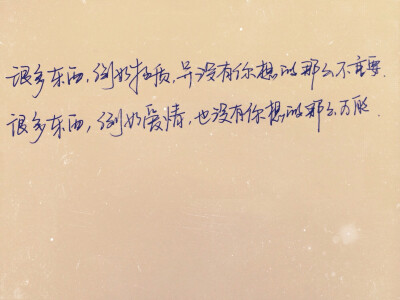 很多东西,例如物质,并没有你想的那么不重要.
很多东西,例如爱情,也没有你想的那么万能.